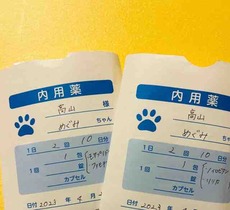 内用薬
高山 様
めぐみ ちゃん
1日 2 回 10日分
1回 1 包
錠
カプセル
日付 2023年4月
内用薬
高山
めぐみ
1日 2 回 10日
1回 1 包
錠
カプセル
日付 2023年